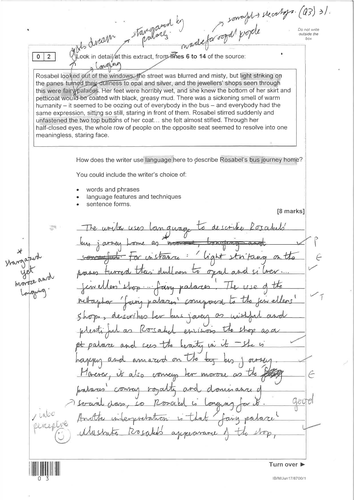 example + develops. (Q3) 31.
Do not write
outside the
box
made for royal people
longing
0 2 Look in detail at this extract, from lines 6 to 14 of the source:
Rosabel looked out of the windows; the street was blurred and misty, but light striking on
the panes turned their dullness to opal and silver, and the jewellers' shops seen through
this were fairy palaces. Her feet were horribly wet, and she knew the bottom of her skirt and
petticoat would be coated with black, greasy mud. There was a sickening smell of warm
humanity – it seemed to be oozing out of everybody in the bus – and everybody had the
same expression, sitting so still, staring in front of them. Rosabel stirred suddenly and
unfastened the two top buttons of her coat… she felt almost stifled. Through her
half-closed eyes, the whole row of people on the opposite seat seemed to resolve into one
meaningless, staring face.
How does the writer use language here to describe Rosabel's bus journey home?
You could include the writer's choice of:
• words and phrases
• language features and techniques
• sentence forms.
[8 marks]
The writer uses language to describe Rosabel's
bus journey home as
For instance: 'light striking on the
panes turned their dullness to opal and silver...
jewellers' shop... fairy palaces'. The use of the
metaphor 'fairy palaces' comparison to the jewellers'
shop, describes her bus journey as wishful and
plentiful as Rosabel envisions the shop as a
palace and sees the beauty in it. She is
happy and on the bus journey.
it also conveys her morose as the
palaces' convey royalty and dominance of
class, so Rosabel is longing for it. good
Another interpretation is that 'fairy palaces'
illustrate Rosabel's appearance of the shop,
yet
morose and
longing.
perceptive
Turn over
0 3